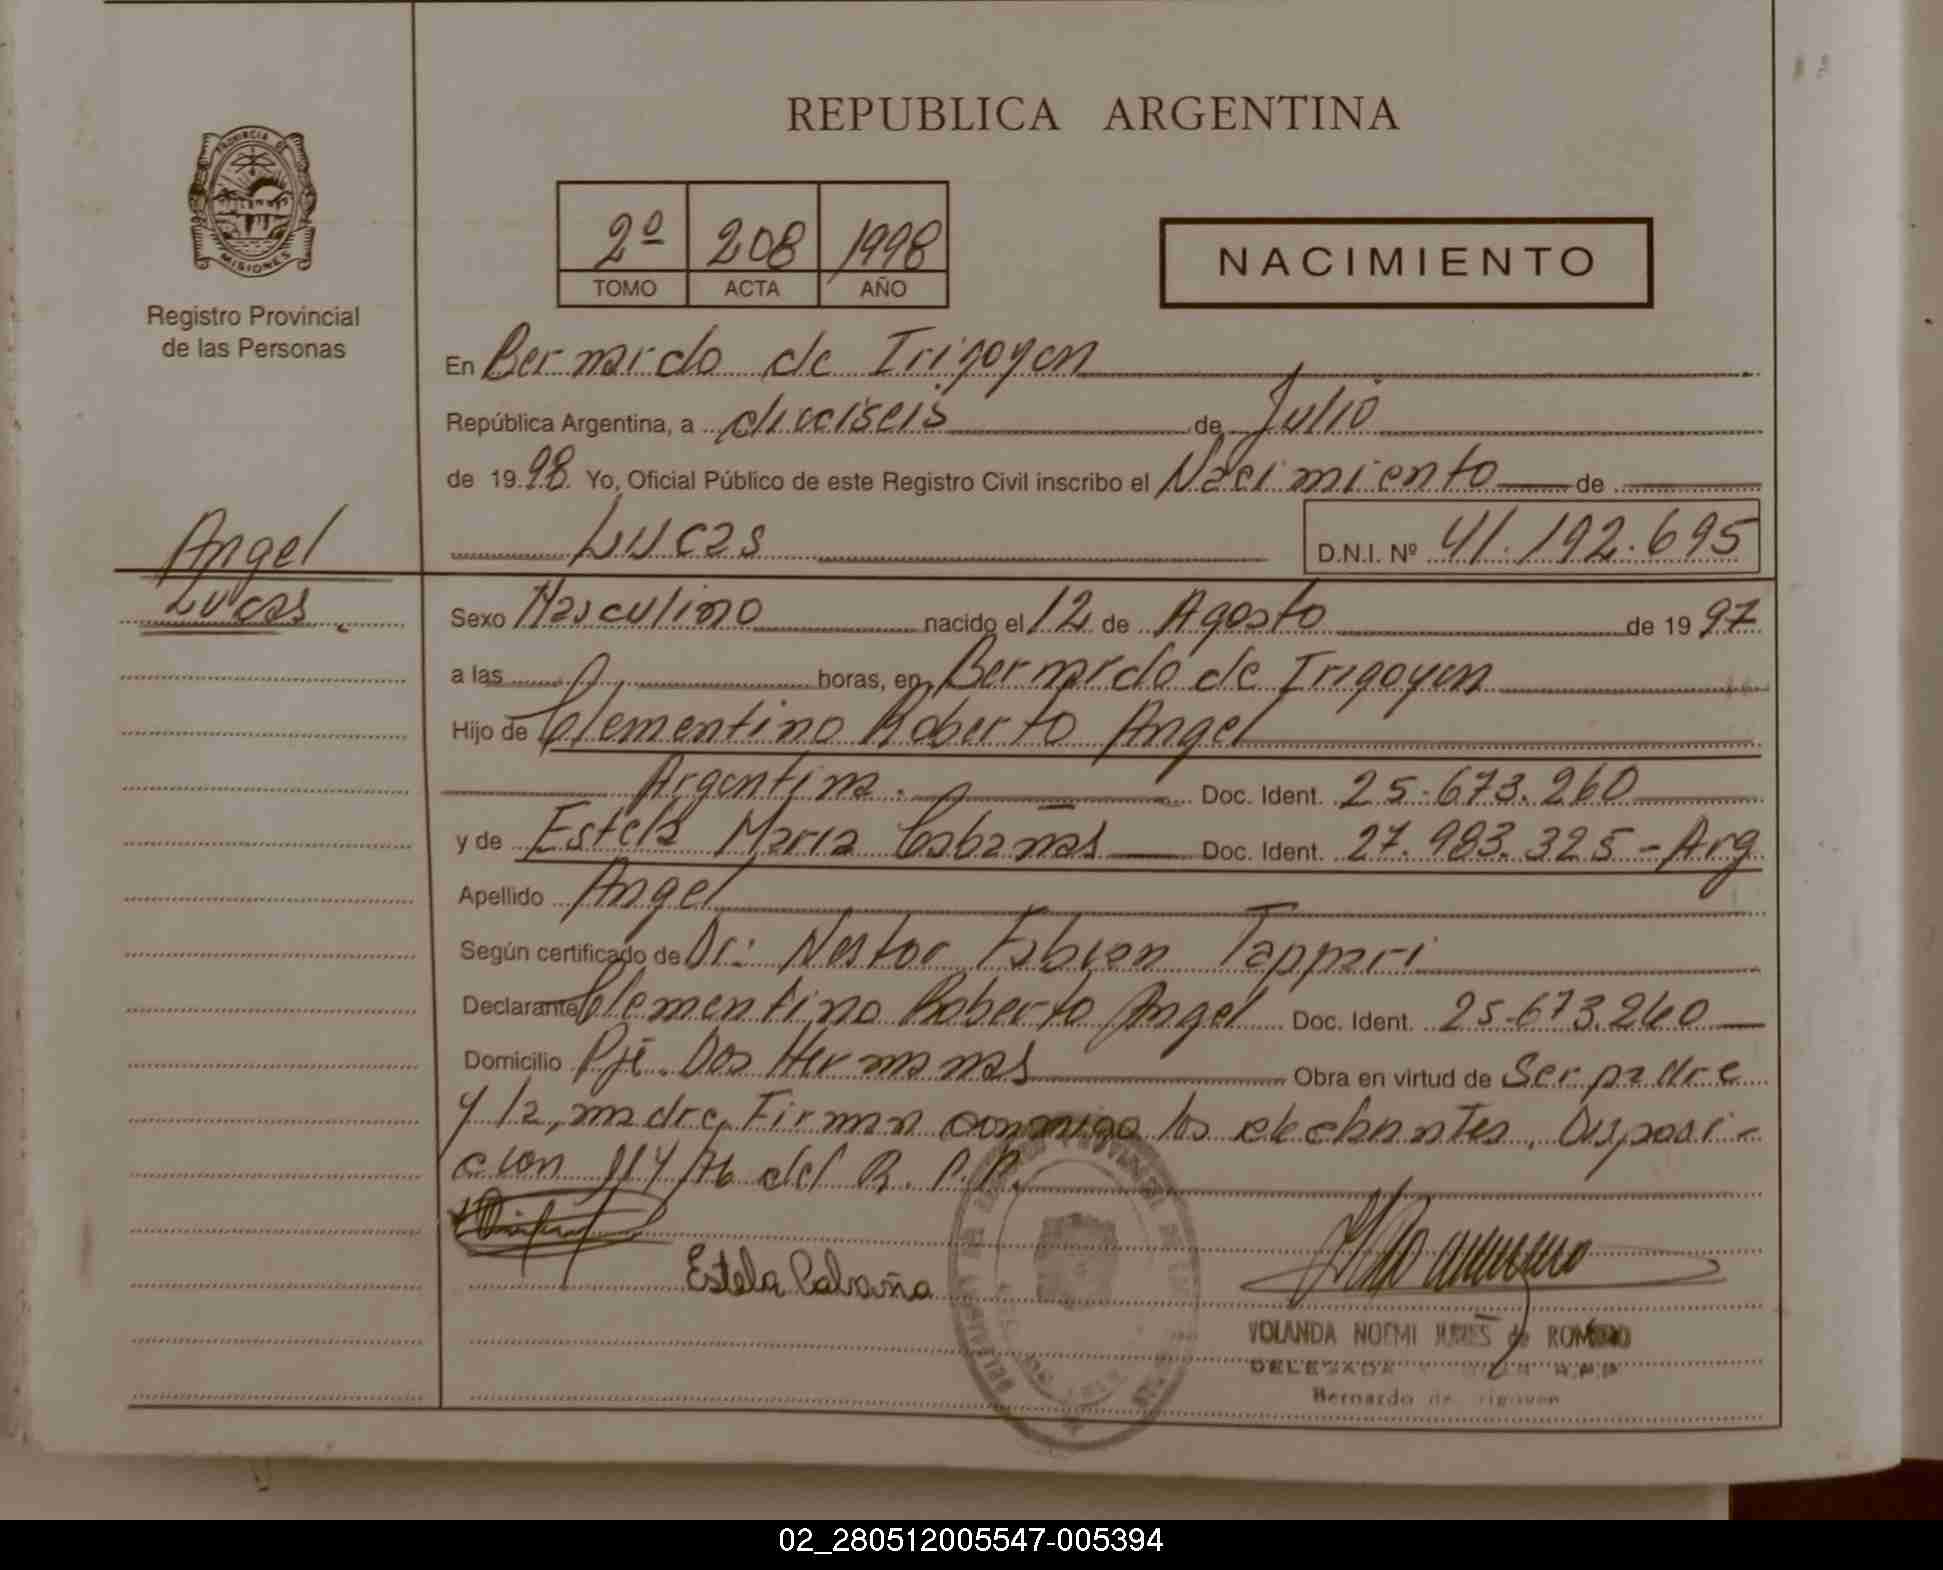 REPUBLICA ARGENTINA
PROVINCIA DE
MISIONES
Registro Provincial
de las Personas
2º 208 1998
TOMO ACTA AÑO
NACIMIENTO
En Bernardo de Irigoyen
República Argentina, a dieciseis de Julio
de 1998 Yo, Oficial Público de este Registro Civil inscribo el Nacimiento de
Lucas D.N.I. Nº 41.192.695
Angel
Lucas.
Sexo Masculino nacido el 12 de Agosto de 1997
a las horas, en Bernardo de Irigoyen
Hijo de Clementino Roberto Angel
Argentina. Doc. Ident. 25.673.260
y de Estela Maria Cabañas Doc. Ident. 27.983.325 - Arg
Apellido Angel
Según certificado de Dr: Nestor Fabian Tappari
Declarante Clementino Roberto Angel Doc. Ident. 25.673.260
Domicilio Pje. Dos Hermanas Obra en virtud de Ser padre
y la madre, Firman conmigo los declarantes. Disposi-
cion 114/76 del R.P.P.
Estela Cabaña
YOLANDA NOEMI de ROMERO
DELEGADA R.P.P
Bernardo de Irigoyen
02_280512005547-005394